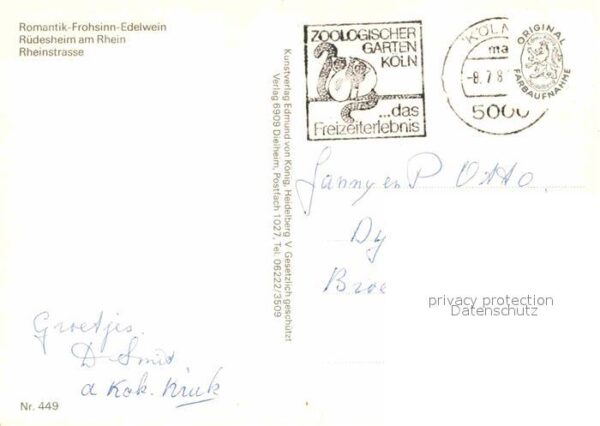 Romantik-Frohsinn-Edelwein
Rüdesheim am Rhein
Rheinstrasse
ZOOLOGISCHER
GARTEN
KÖLN
...das
Freizeiterlebnis
KÖLN
-8.7.8
5000
ORIGINAL
FARBAUFNAHME
Kunstverlag Edmund von König, Heidelberg V Gesetzlich geschützt
Verlag 6909 Dielheim, Postfach 1027, Tel. 06222/3509
en P Otto
Dy
Broe
privacy protection
Datenschutz
Groetjes.
D Smit
a Kok. Kruk
Nr. 449